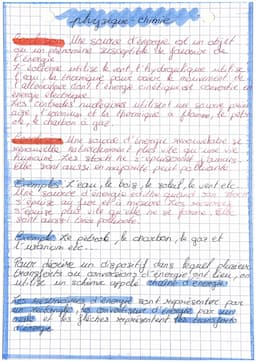 physique-chimie
Conclusion: Une source d'énergie est un objet
ou un phénomène susceptible de fournir de
l'énergie.
L'éolienne utilise le vent, l'hydraulique utilise
l'eau, la thermique pour créer le mouvement de
l'alternateur dont l'énergie cinétique est convertie en
énergie électrique.
Les centrales nucléaires utilisent un source
l'uranium et la thermique à flamme, le pétro
le, le charbon a gaz.
Conclusion: Une source d'énergie renouvelable se
renouvelle naturellement plus vite qu'une vie
humaine. Les stock ne s'épuisent jamais.
Elle sont aussi en majorité peut polluante.
Exemples: L'eau, le bois, le soleil, le vent etc...
Une source d'énergie est
s'épuise au fur et à mesure. Les
s'épuise plus vite qu'elle ne se forme, elle
sont aussi très polluante.
Exemple: Le pétrole, le charbon, le gaz et
l'uranium etc...
Pour décrire un dispositif dans lequel plusieurs
transferts ou conversions d'énergie ont lieu, on
utilise un schéma appelé chaîne d'énergie.
Les réservoires d'énergie sont représenter par
un rectangle, les convertisseur d'énergie par un
rond et les flèches représentent les transferts
d'énergie.